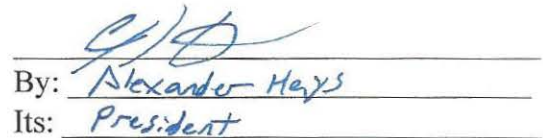 By: Alexander Hays
Its: President